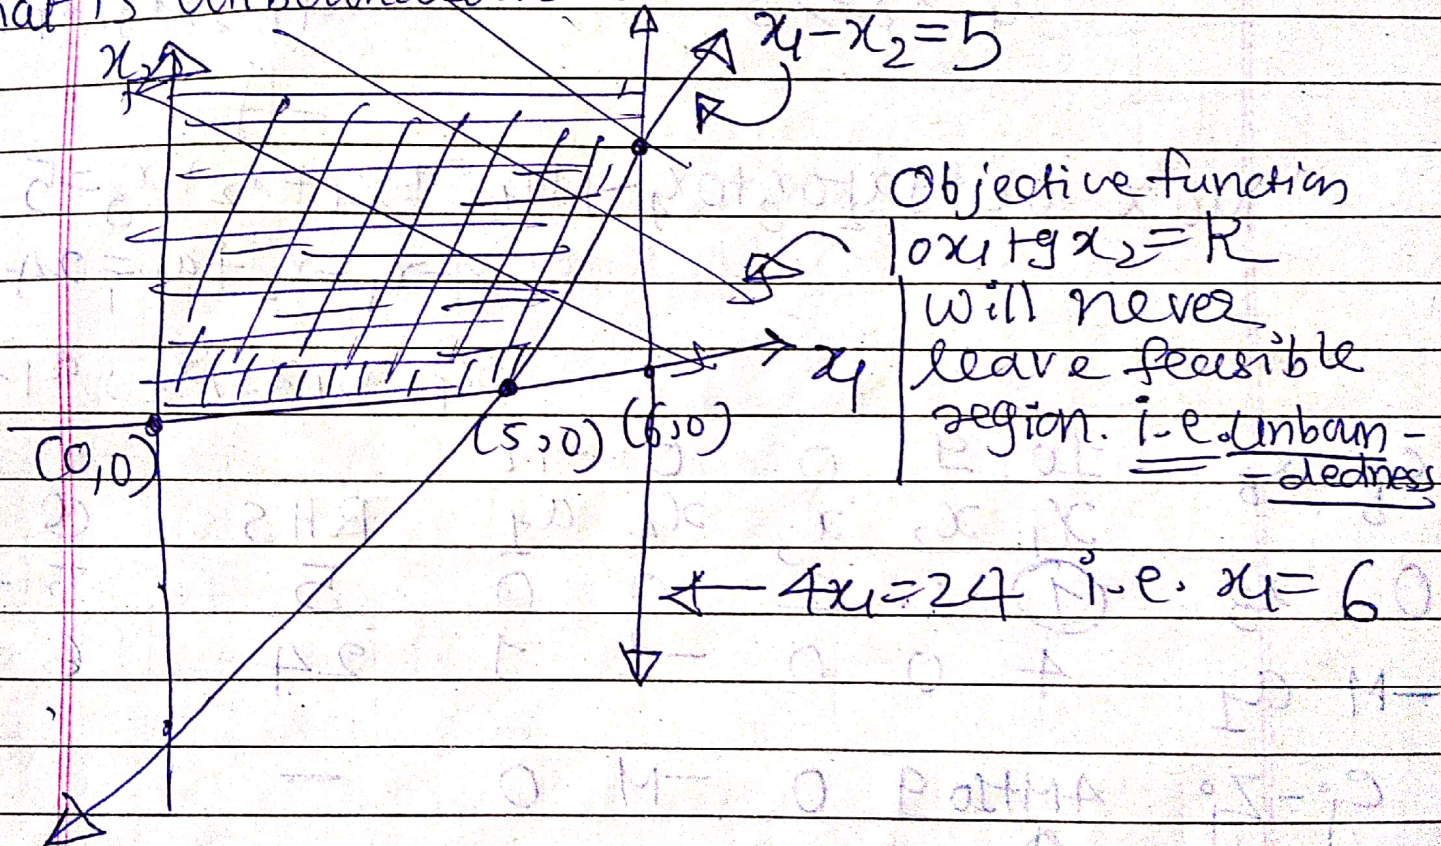 x₂
x₁-x₂=5
Objective function
10x₁+9x₂=k
will never
leave feasible
region. i.e. unboun-
-dedness
x₁
(0,0)
(5,0) (6,0)
4x₁=24 i.e. x₁=6